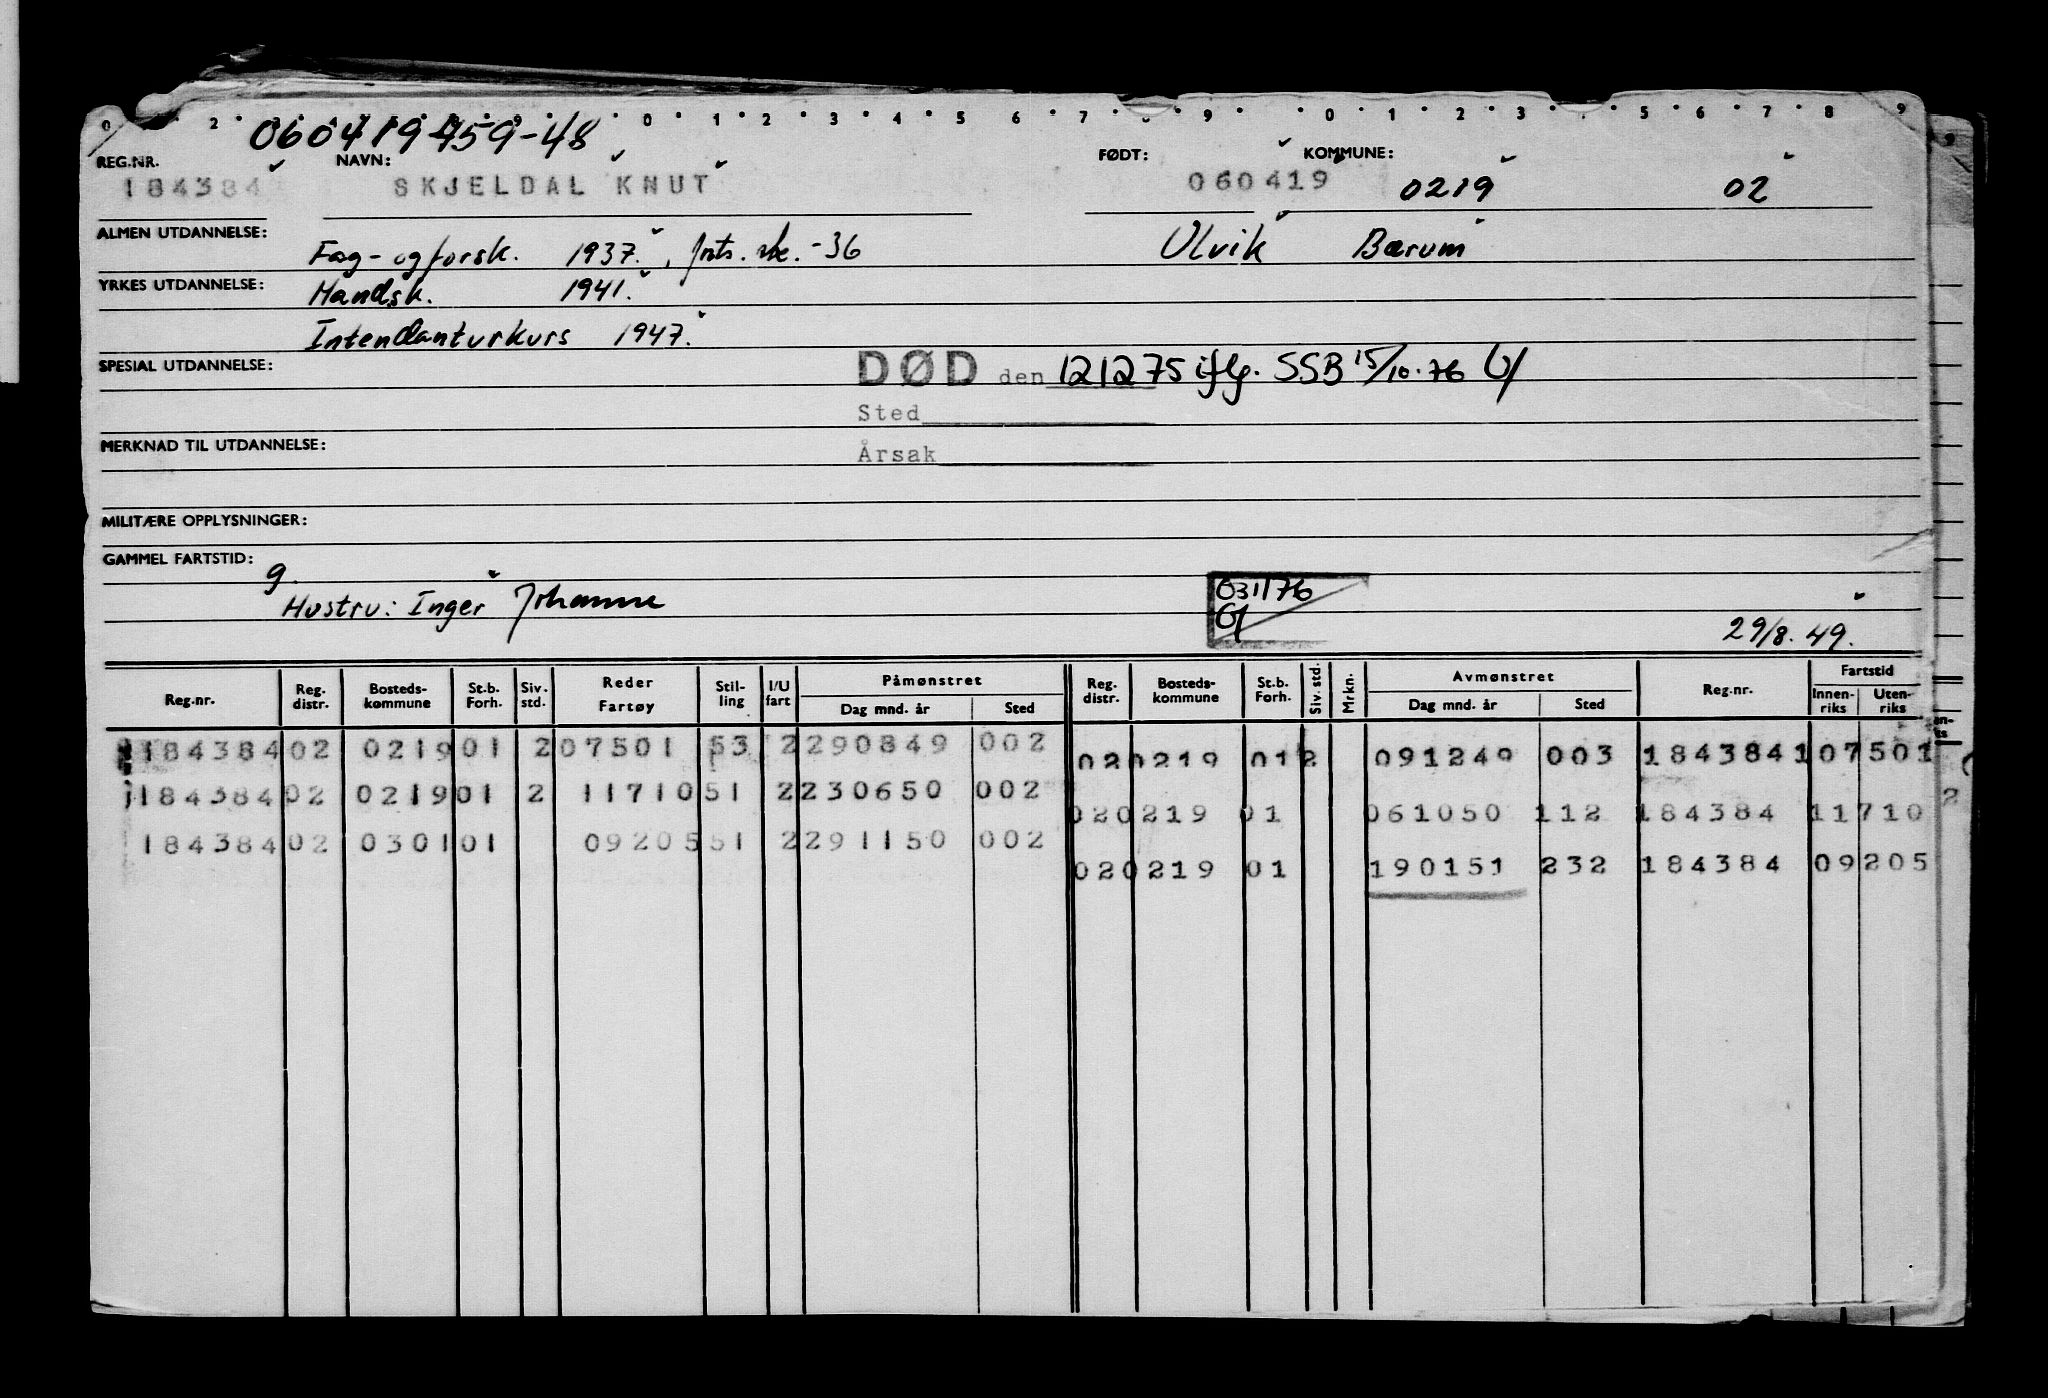 060419 459-48
REG.NR. NAVN: FØDT: KOMMUNE:
184384 SKJELDAL KNUT 060419 0219 02
ALMEN UTDANNELSE: Fag- og forsk. 1937., -36 Ulvik Bærum
YRKES UTDANNELSE: Handsk. 1941.
Intendanturkurs 1947.
SPESIAL UTDANNELSE: DØD den 121275 iflg. SSB 15/10-76
Sted
MERKNAD TIL UTDANNELSE: Årsak
MILITÆRE OPPLYSNINGER:
GAMMEL FARTSTID:
g.
Hustru: Inger Johanne 031176 29/8.49.
Reg.nr. Reg. distr. Bosteds-kommune St.b. Forh. Siv. std. Reder Fartøy Stil-ling I/U fart Påmønstret Dag mnd. år Sted Reg. distr. Bosteds-kommune St.b. Forh. Siv. std. Mrkn. Avmønstret Dag mnd. år Sted Reg.nr. Fartstid Innen-riks Uten-riks
184384 02 0219 01 2 07501 53 2 290849 002
02 0219 01 2 091249 003 184384 1 07501
184384 02 0219 01 2 11710 51 2 230650 002
02 0219 01 061050 112 184384 11710
184384 02 0301 01 09205 51 2 291150 002
02 0219 01 190151 232 184384 09205